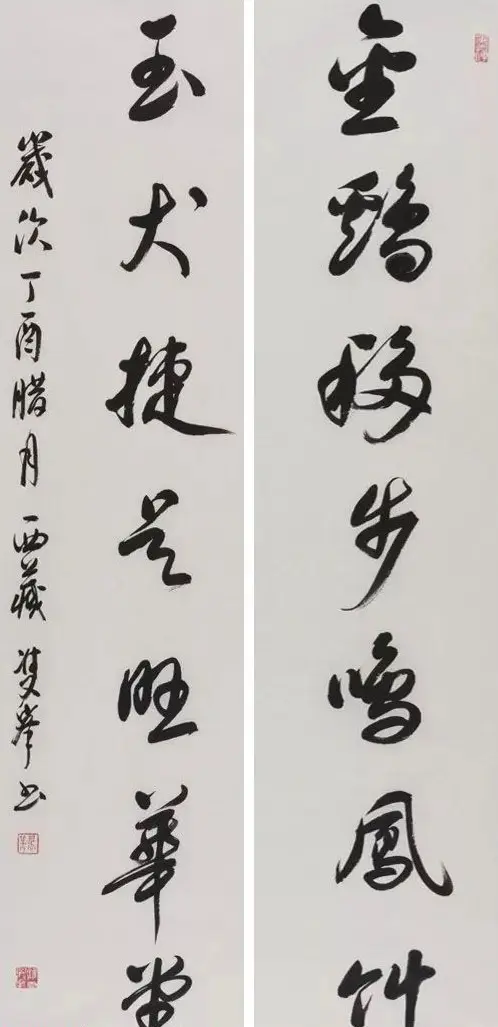 金鷄移步鳴鳳
玉犬捷足旺華堂
歲次丁酉腊月西藏雙峯书